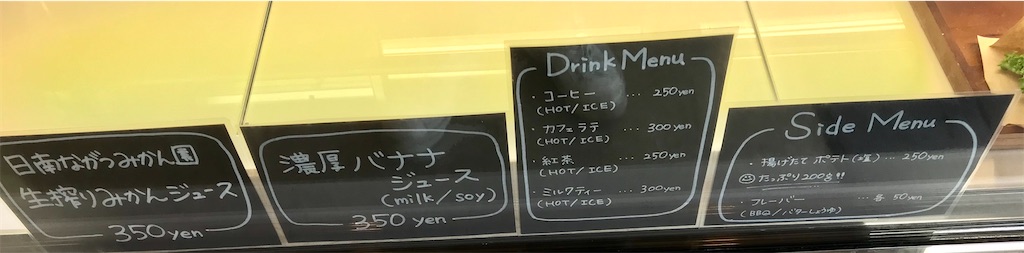 日南ながつみかん園
生搾りみかんジュース
350yen
濃厚バナナ
ジュース
(milk/soy)
350yen
Drink Menu
・コーヒー … 250yen
(HOT/ICE)
・カフェラテ … 300yen
(HOT/ICE)
・紅茶 … 250yen
(HOT/ICE)
・ミルクティー … 300yen
(HOT/ICE)
Side Menu
・揚げたてポテト(塩) … 250yen
たっぷり200g!!
・フレーバー … 各50yen
(BBQ/バターしょうゆ)